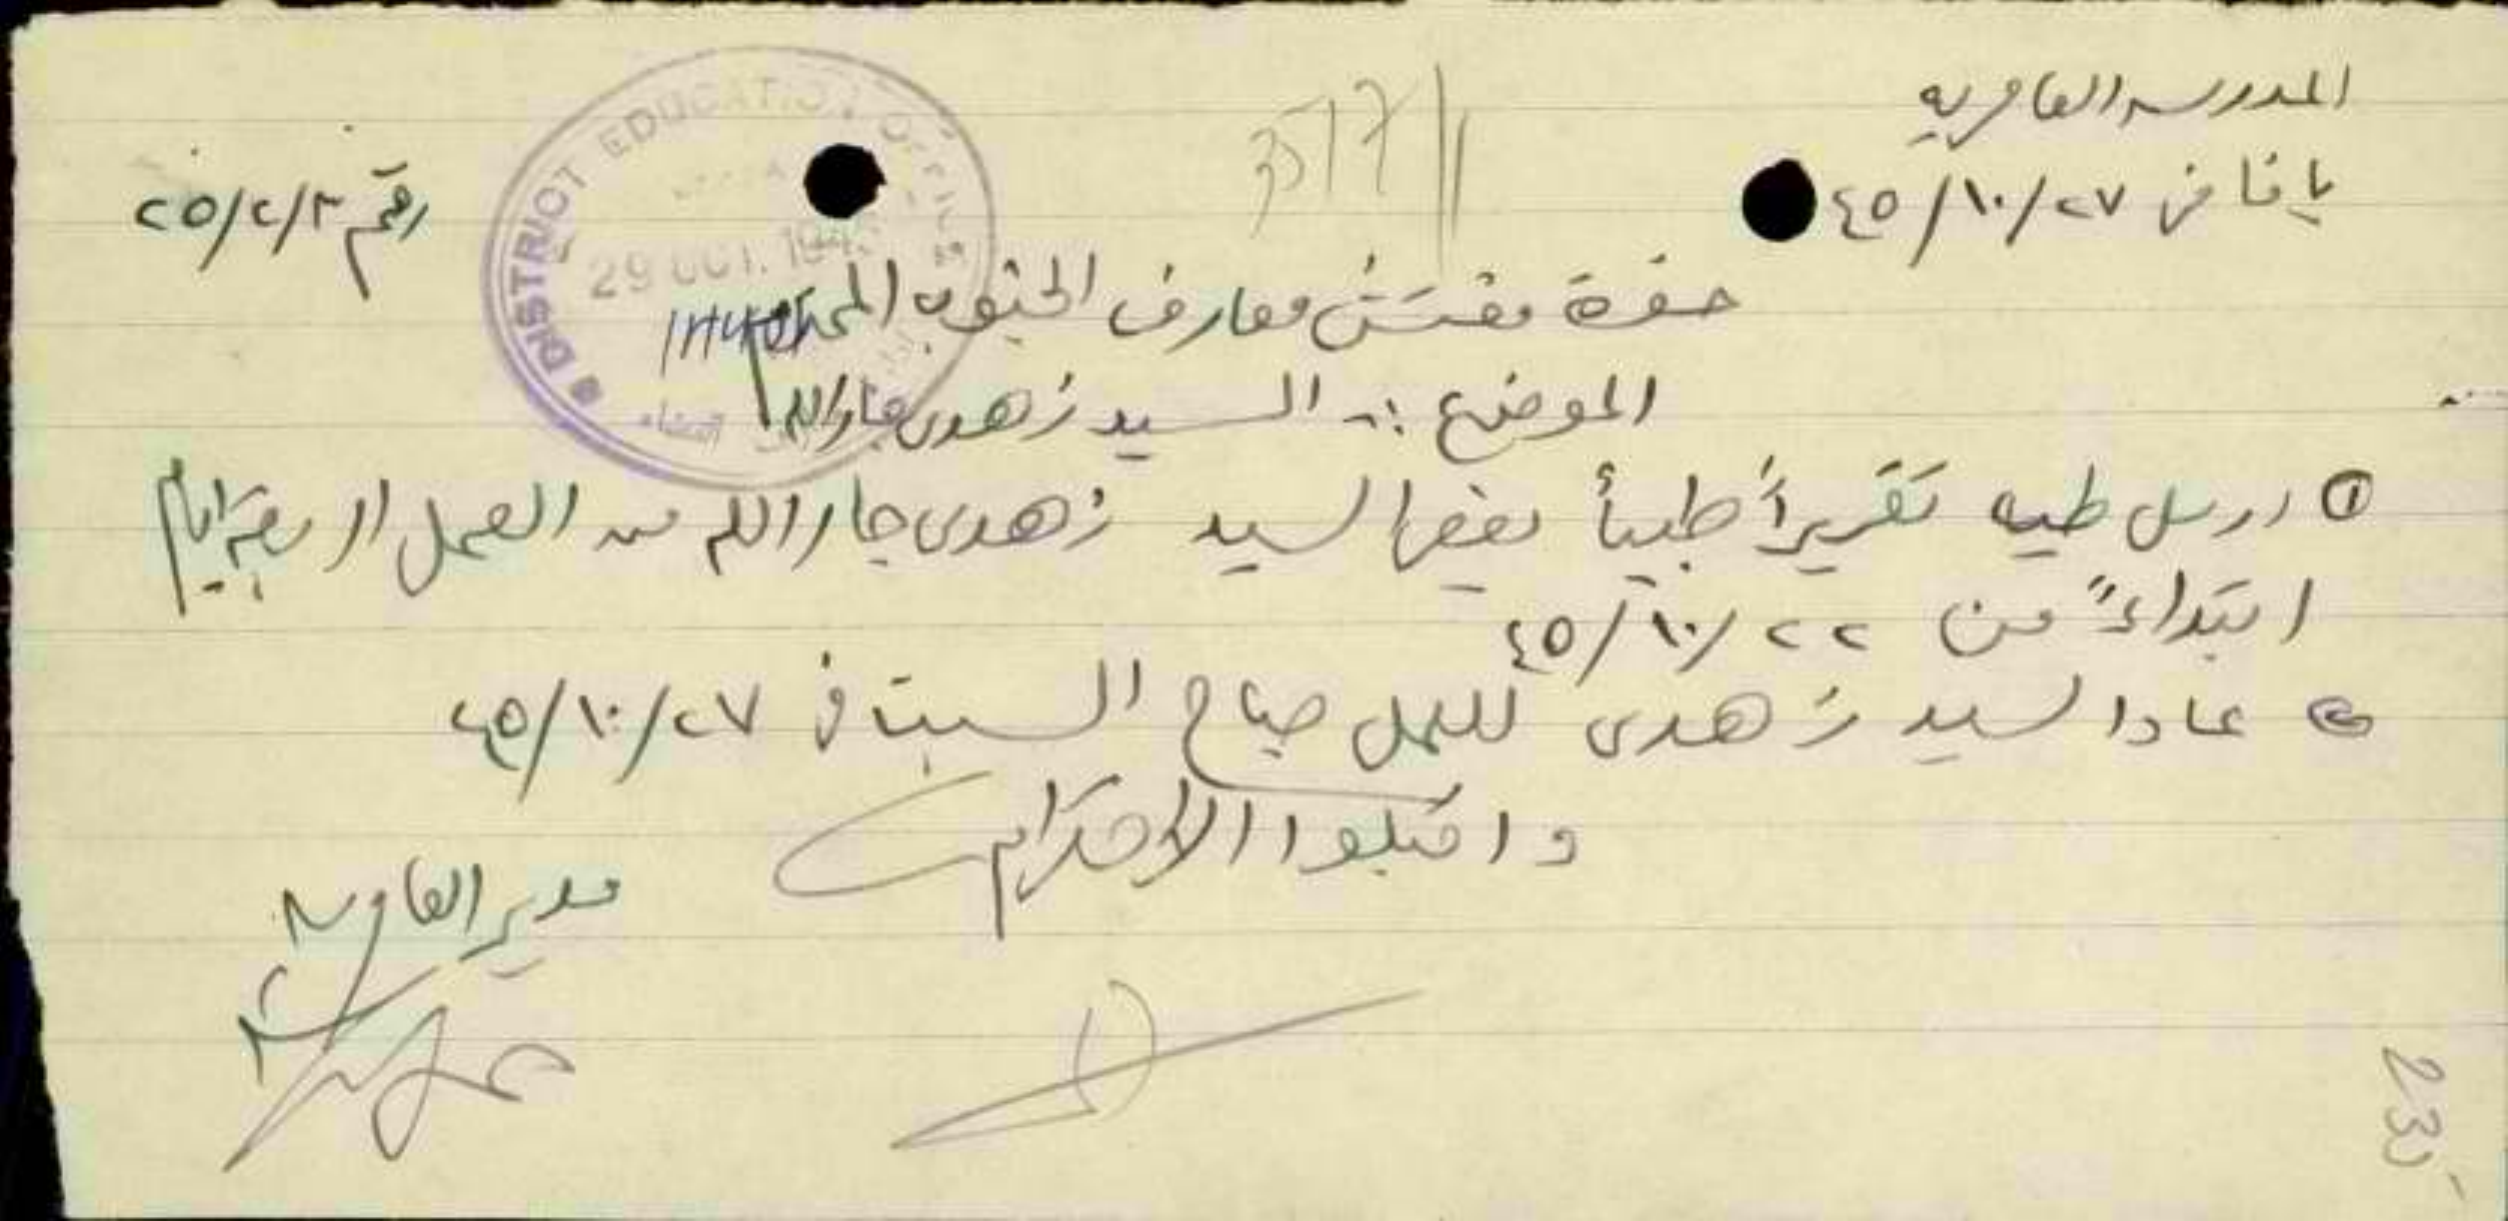 المدرسه العامريه
يافا في ٢٧/١٠/٤٥
رقم ٣/٢/٢٥
3517
DISTRICT EDUCATION OFFICE
29 OCT. 194
حضرة مفتش معارف الجنوب المحترم
الموضوع :- السيد زهدي جار الله
① ارسل طيه تقريراً طبياً يعفي السيد زهدي جار الله من العمل اربعة ايام
ابتداءً من ٢٢/١٠/٤٥
② عاد السيد زهدي للعمل صباح السبت في ٢٧/١٠/٤٥
واقبلوا الاحترام
مدير العامريه
235